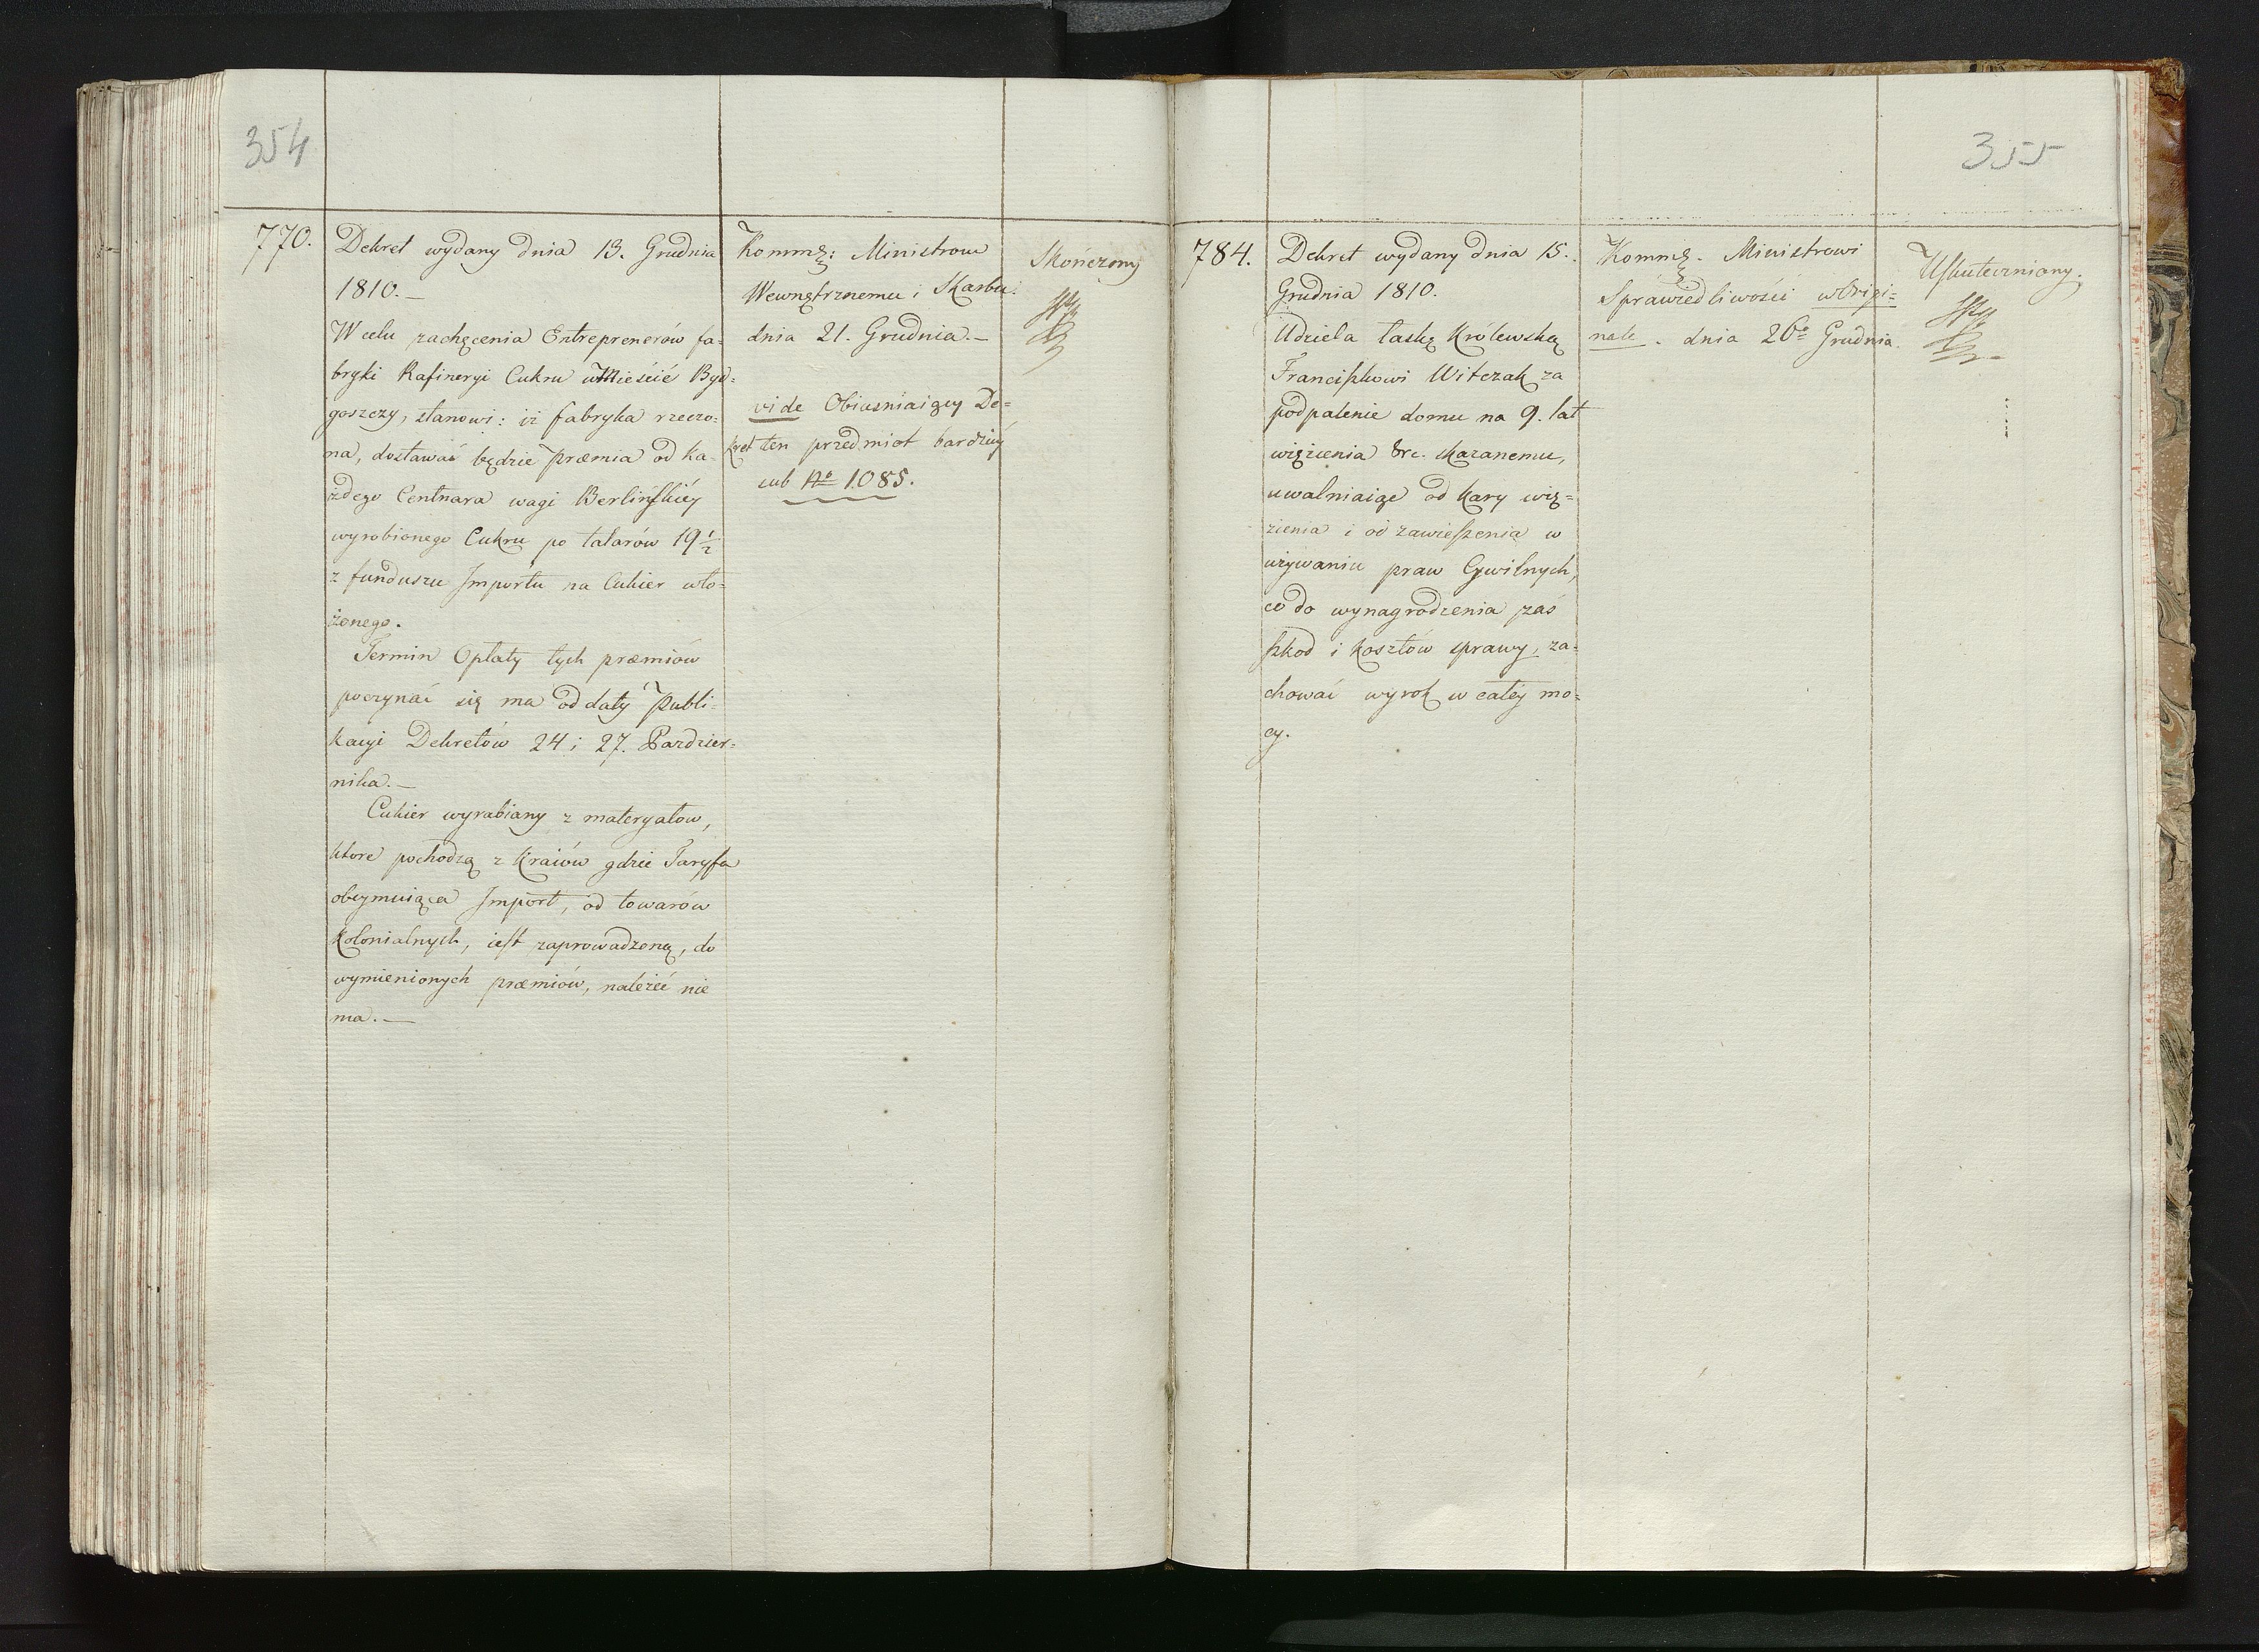 354
770.
Dekret wydany dnia 13. Grudnia
1810. —
W celu zachęcenia Entreprenerów fa=
bryki Rafineryi Cukru w Mieście Byd=
goszczy, stanowi: iż fabryka rzeczo=
na, dostawać będzie præmia od ka=
żdego Centnara wagi Berlińskiéy
wyrobionego Cukru po talarów 19 1/2
z funduszu Importu na Cukier wło=
żonego.
Termin Opłaty tych præmiów
poczynać się ma od daty Publi=
kacyi Dekretów 24 i 27. Pazdzier=
nika. —
Cukier wyrabiany z materyałow,
ktore pochodzą z Kraiów gdzie Taryfa
obeymuiąca Import, od towarów
Kolonialnych, iest zaprowadzoną, do
wymienionych præmiów, należéć nie
ma. —
Kommk: Ministrom
Wewnętrznemu i Skarbu
dnia 21. Grudnia. —
vide Obiasniaiący De=
kret ten przedmiot bardziéy
sub No 1085.
Skonczony
355
784.
Dekret wydany dnia 15.
Grudnia 1810.
Udziela łaskę Królewską
Franciszkowi Witczak za
podpalenie domu na 9. lat
więzienia &c. skazanemu,
uwalniaiąc od kary wię=
zienia i od zawieszenia w
używaniu praw Cywilnych,
co do wynagrodzenia zaś
szkod i kosztów sprawy, za=
chować wyrok w całéy mo=
cy.
Kommk. Ministrowi
Sprawiedliwości w Origi=
nale. dnia 26o Grudnia.
Uskuteczniony.